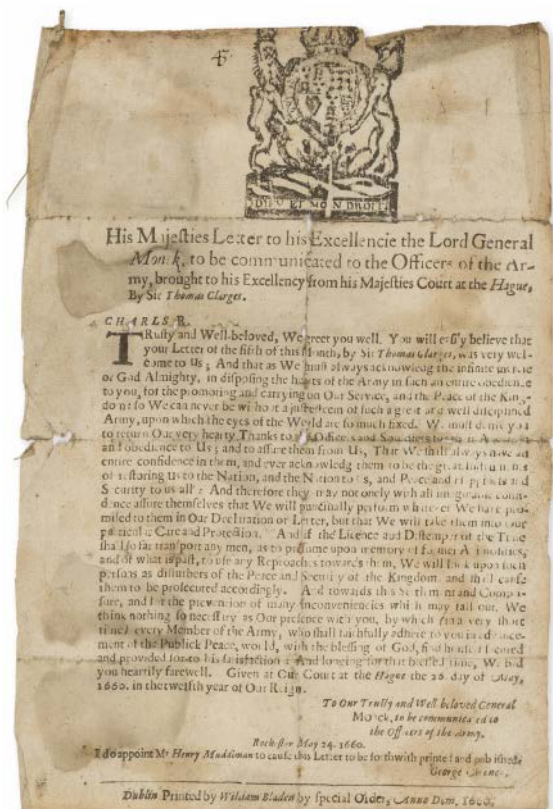 DIEU ET MON DROIT
His Majesties Letter to his Excellencie the Lord General
Monck, to be communicated to the Officers of the Ar-
my, brought to his Excellency from his Majesties Court at the Hague,
By Sir Thomas Clarges.
CHARLS R.
TRusty and Well-beloved, We greet you well. You will easily believe that
your Letter of the fifth of this Month, by Sir Thomas Clarges, was very wel-
come to Us; And that as We must always acknowledg the infinite
of God Almighty, in disposing the hearts of the Army in such an entire obedience
to you, for the promoting and carrying on Our Service, and the Peace of the King-
dom: so We can never be without a just esteem of such a great and well disciplined
Army, upon which the eyes of the World are so much fixed. We must
to return Our very hearty Thanks to Officers and Souldiers
and obedience to Us; and to assure them from Us, That We shall always have an
entire confidence in them, and ever acknowledg them to be the great
of restoring us to the Nation, and the Nation to us, and Peace and Happiness and
Security to us all: And therefore they may not onely with all imaginable confi-
dence assure themselves that We will punctually perform whatever We have pro-
mised to them in Our Declaration or Letter, but that We will take them into our
particular Care and Protection. And if the Licence and Distemper of the Time
shall so far transport any men, as to presume upon memory of former Animosities,
and of what is past, to use any Reproaches towards them, We will look upon such
persons as disturbers of the Peace and Security of the Kingdom, and shall cause
them to be prosecuted accordingly. And towards this Settlement and Compo-
sure, and for the prevention of many inconveniencies which may fall out, We
think nothing so necessary as Our presence with you, by which in a very short
time every Member of the Army, who shall faithfully adhere to you in advance-
ment of the Publick Peace, would, with the blessing of God, find himself secured
and provided for to his satisfaction: And longing for that blessed time, We bid
you heartily farewell. Given at Our Court at the Hague the 20. day of May,
1660. in the twelfth year of Our Reign.
To Our Trusty and Well beloved General
Monck, to be communicated to
the Officers of the Army.
Rochester May 24. 1660.
I do appoint Mr Henry Muddiman to cause this Letter to be forthwith printed and published.
George
Dublin Printed by William Bladen by special Order, Anno Dom, 1660.